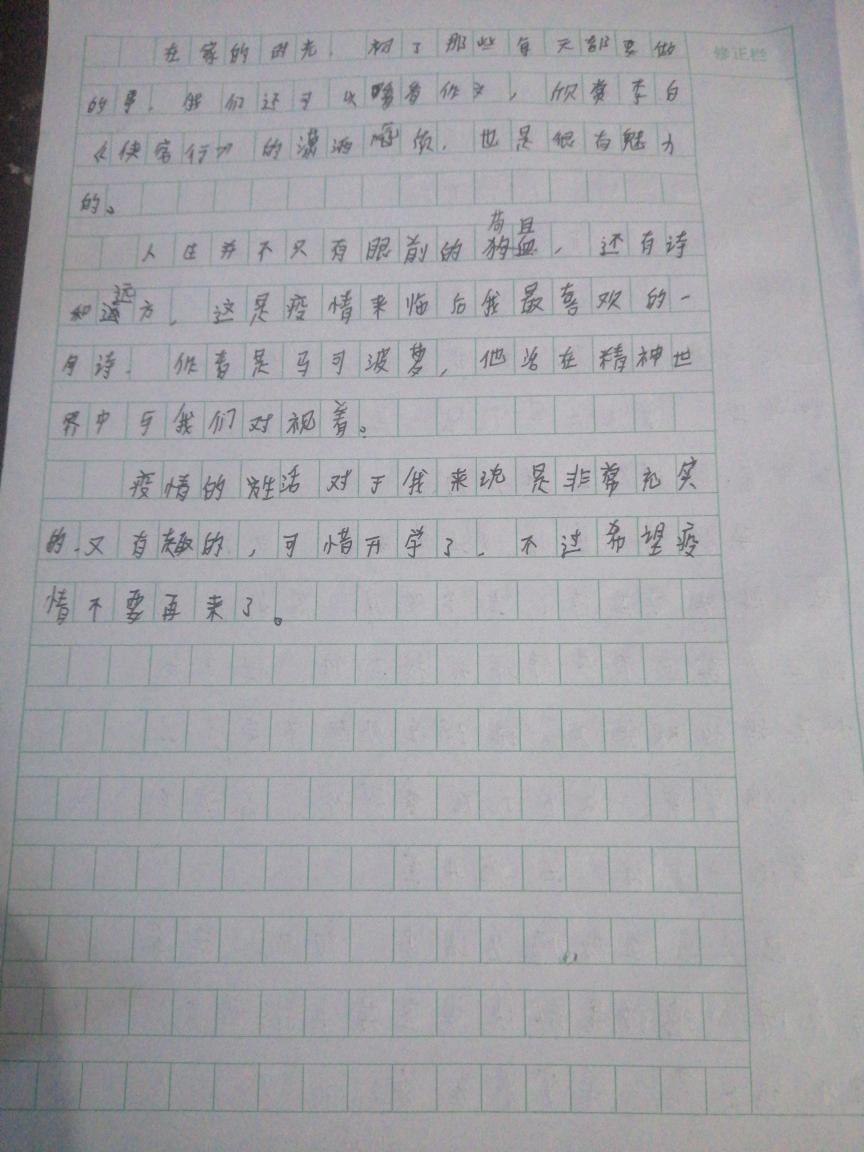 在家的时光，除了那些每天都要做 修正栏
的事，我们还可以看作文，欣赏李白
《侠客行》的潇洒，也是很有魅力
的。
人生并不只有眼前的苟且，还有诗
和远方，这是疫情来临后我最喜欢的一
句诗，作者是马可波萝，他活在精神世
界中与我们对视着。
疫情的生活对于我来说是非常充实
的，又有趣的，可惜开学了，不过希望疫
情不要再来了。